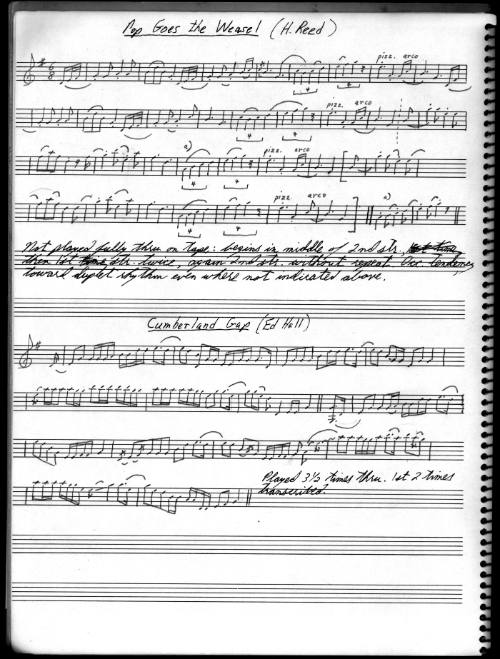 Pop Goes the Weasel (H. Reed)
pizz. arco
4 4
pizz. arco
4 4
a) pizz. arco
4 4
pizz arco a)
4 4
Not played fully thru on tape: begins in middle of 2nd str.,
then 1st str. twice, again 2nd str. without repeat. Occ. tendency
toward duplet rhythm even where not indicated above.
Cumberland Gap (Ed Hall)
Played 3½ times thru. 1st 2 times
transcribed.